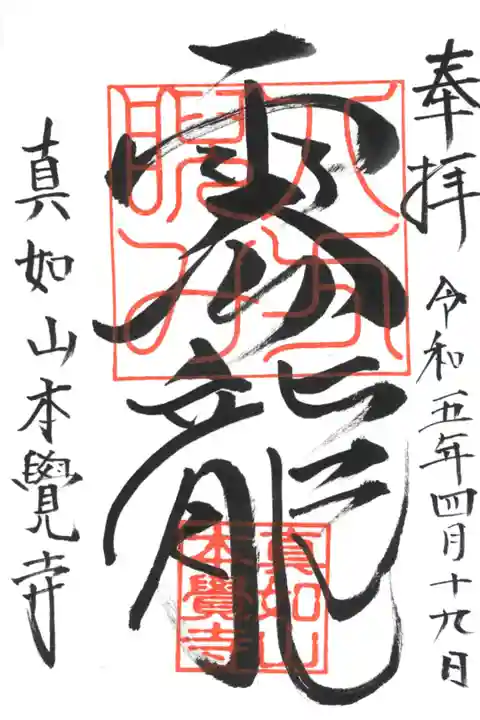 奉拝 令和五年四月十九日
雲龍
八方
睨み
真如山
本覺寺
真如山本覺寺